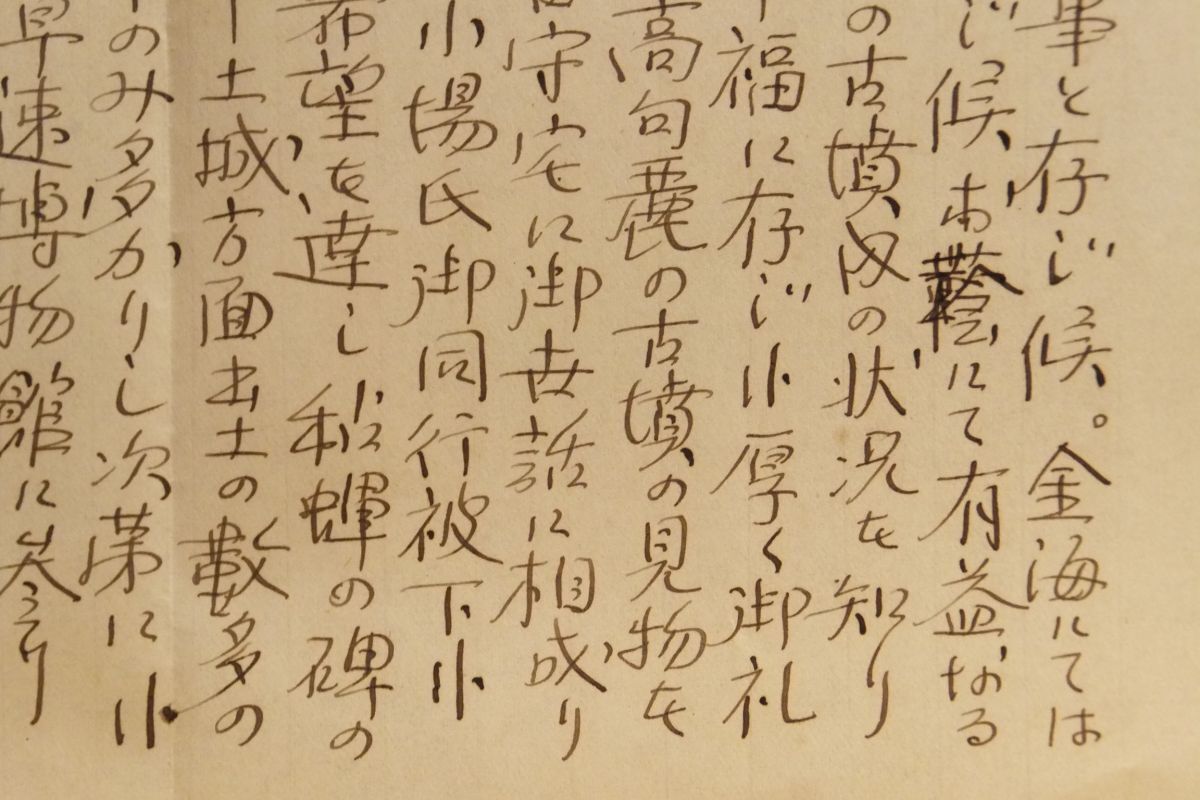 事と存じ候。金海にては
じ候 お蔭にて有益なる
の古墳内の状況を知り
福に存じ小厚く御礼
高句麗の古墳の見物を
守宅に御世話に相成り
小場氏御同行被下小
希望を達し秥蟬の碑の
土城方面出土の数多の
のみ多かりし次第に小
早速博物館に参り